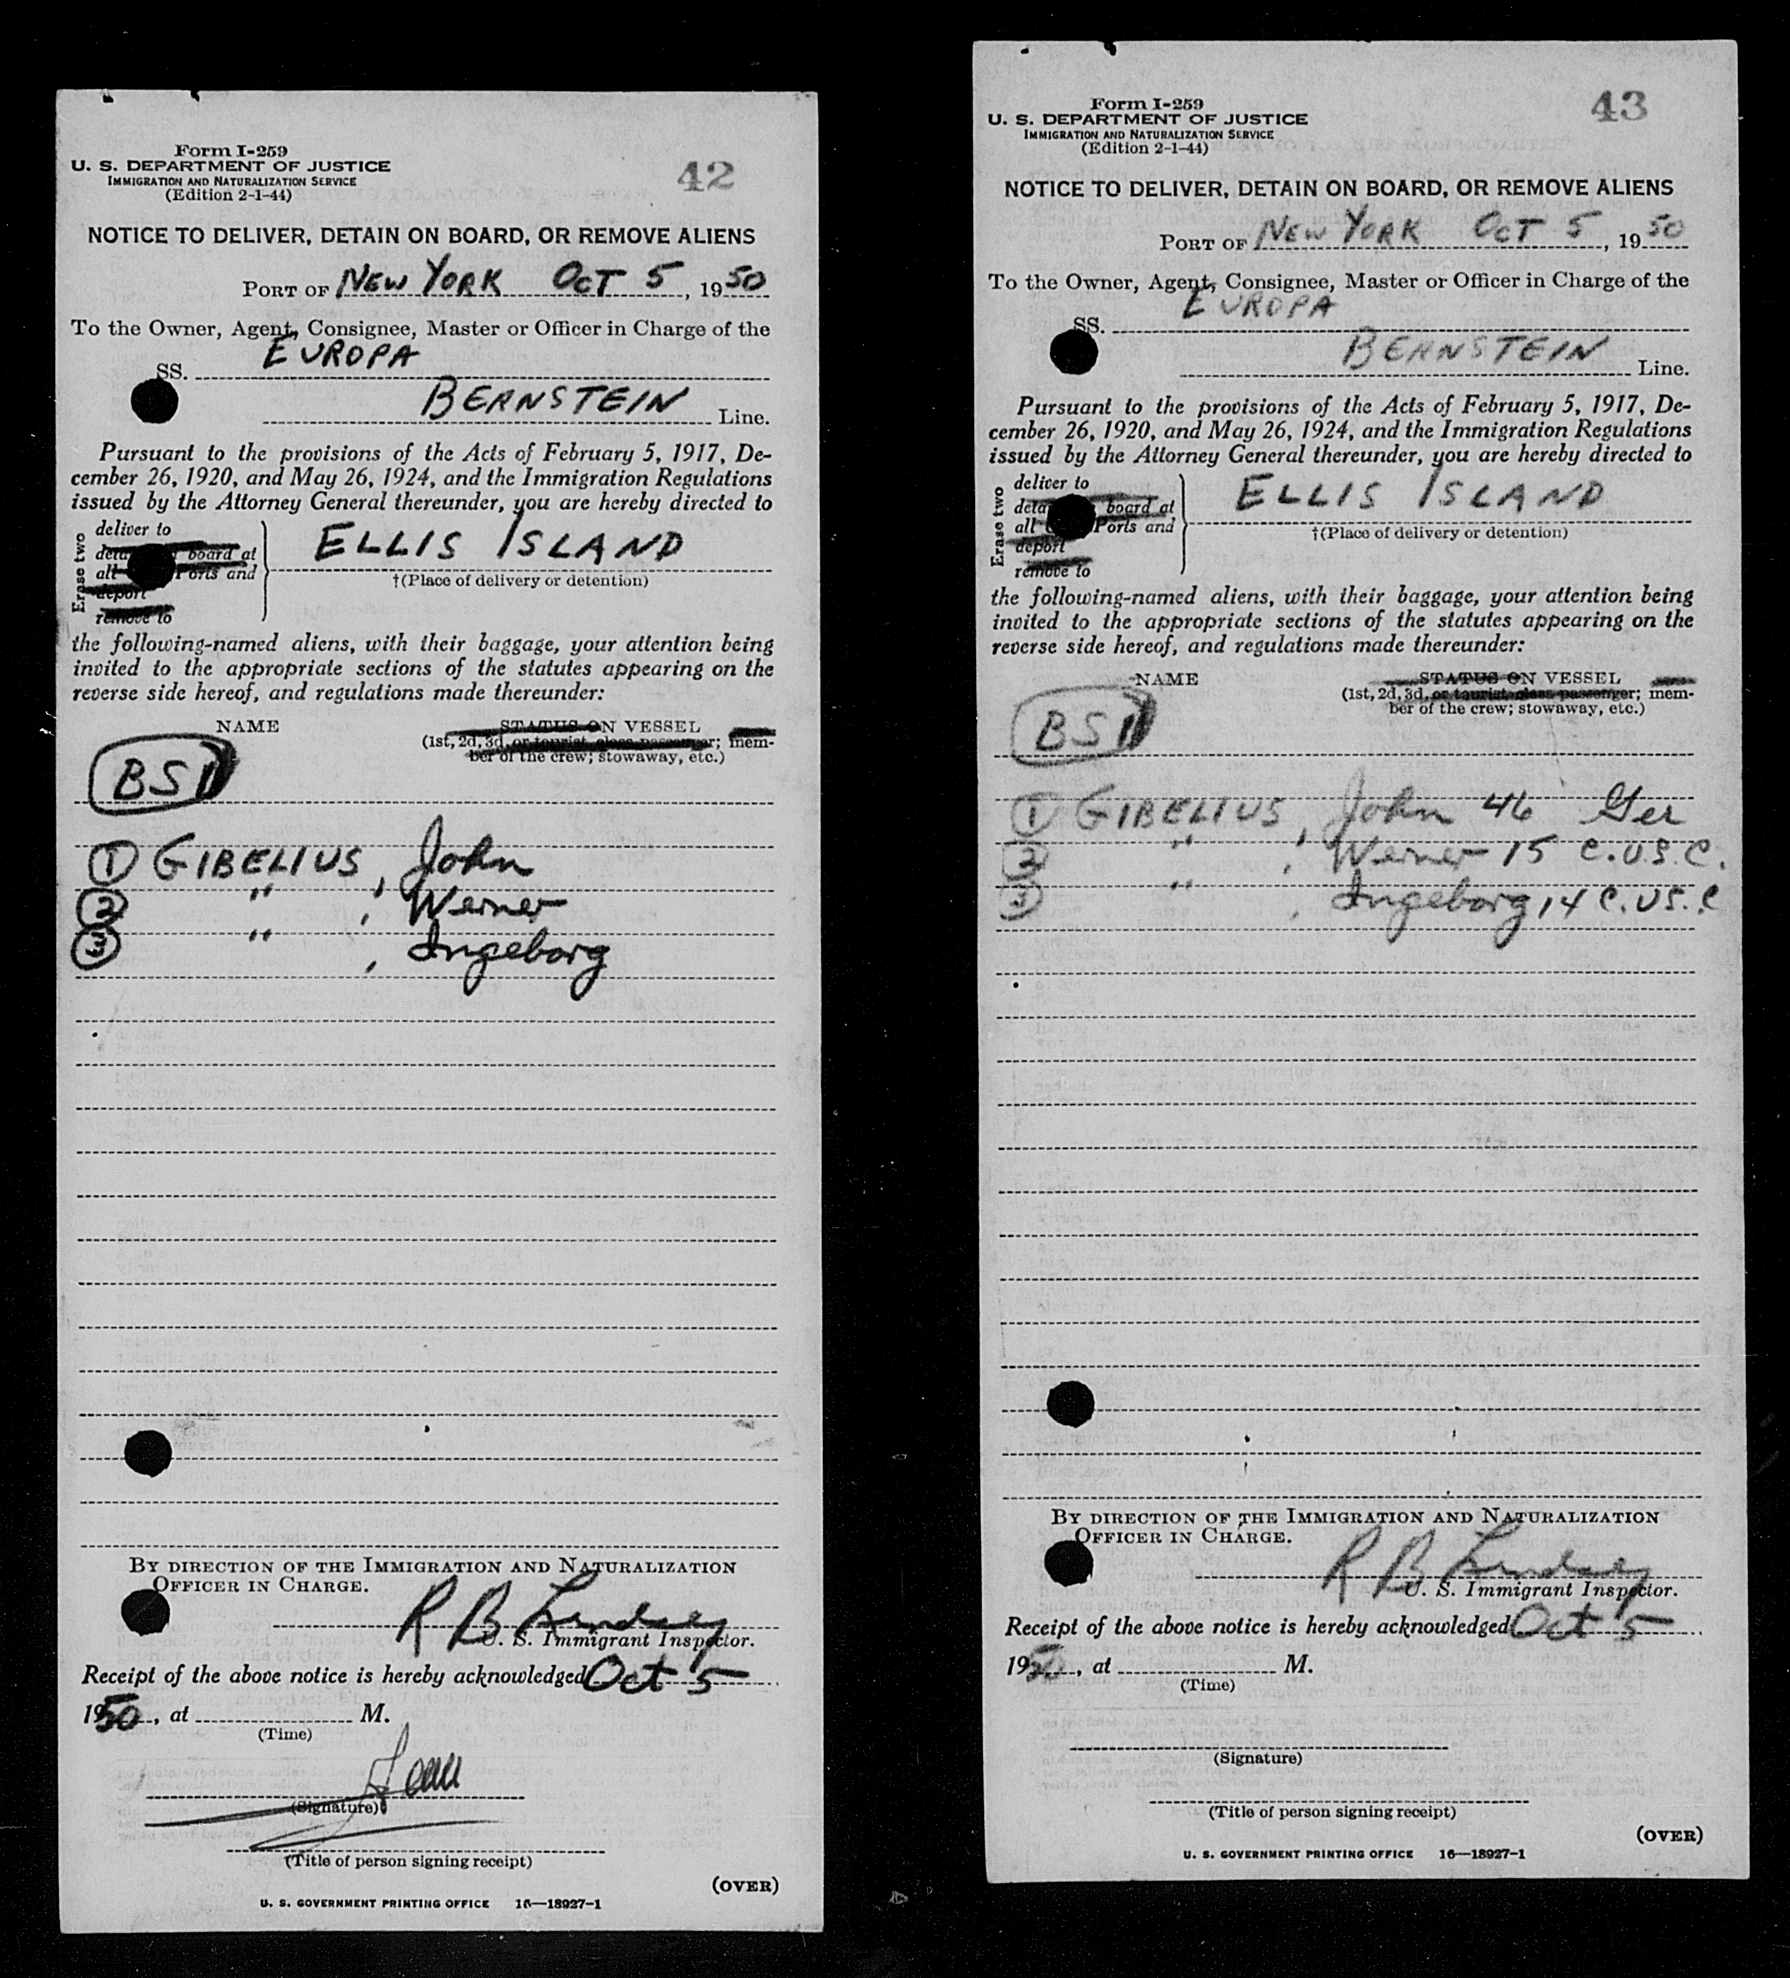 Form I-259
U. S. DEPARTMENT OF JUSTICE
IMMIGRATION AND NATURALIZATION SERVICE
(Edition 2-1-44)
42
NOTICE TO DELIVER, DETAIN ON BOARD, OR REMOVE ALIENS
PORT OF NEW YORK OCT 5, 1950
To the Owner, Agent, Consignee, Master or Officer in Charge of the
SS. EUROPA
BERNSTEIN Line.
Pursuant to the provisions of the Acts of February 5, 1917, De-
cember 26, 1920, and May 26, 1924, and the Immigration Regulations
issued by the Attorney General thereunder, you are hereby directed to
Erase two
deliver to
board at
all Ports and
deport
remove to
ELLIS ISLAND
†(Place of delivery or detention)
the following-named aliens, with their baggage, your attention being
invited to the appropriate sections of the statutes appearing on the
reverse side hereof, and regulations made thereunder:
NAME STATUS ON VESSEL
(1st, 2d, 3d, or tourist class passenger; mem-
ber of the crew; stowaway, etc.)
BSI
1 GIBELIUS, John
2 " , Werner
3 " , Ingeborg
BY DIRECTION OF THE IMMIGRATION AND NATURALIZATION
OFFICER IN CHARGE.
R B Lindsey
U. S. Immigrant Inspector.
Receipt of the above notice is hereby acknowledged Oct 5
1950, at M.
(Time)
(Signature)
(Title of person signing receipt)
(OVER)
U. S. GOVERNMENT PRINTING OFFICE 16—18927-1
Form I-259
U. S. DEPARTMENT OF JUSTICE
IMMIGRATION AND NATURALIZATION SERVICE
(Edition 2-1-44)
43
NOTICE TO DELIVER, DETAIN ON BOARD, OR REMOVE ALIENS
PORT OF NEW YORK OCT 5, 1950
To the Owner, Agent, Consignee, Master or Officer in Charge of the
SS. EUROPA
BERNSTEIN Line.
Pursuant to the provisions of the Acts of February 5, 1917, De-
cember 26, 1920, and May 26, 1924, and the Immigration Regulations
issued by the Attorney General thereunder, you are hereby directed to
Erase two
deliver to
board at
all Ports and
deport
remove to
ELLIS ISLAND
†(Place of delivery or detention)
the following-named aliens, with their baggage, your attention being
invited to the appropriate sections of the statutes appearing on the
reverse side hereof, and regulations made thereunder:
NAME STATUS ON VESSEL
(1st, 2d, 3d, or tourist class passenger; mem-
ber of the crew; stowaway, etc.)
BSI
1 GIBELIUS, John 46 Ger
2 " , Werner 15 C.U.S.C.
3 " , Ingeborg 14 C.US.C
BY DIRECTION OF THE IMMIGRATION AND NATURALIZATION
OFFICER IN CHARGE.
R B Lindsey
U. S. Immigrant Inspector.
Receipt of the above notice is hereby acknowledged Oct 5
1950, at M.
(Time)
(Signature)
(Title of person signing receipt)
(OVER)
U. S. GOVERNMENT PRINTING OFFICE 16—18927-1